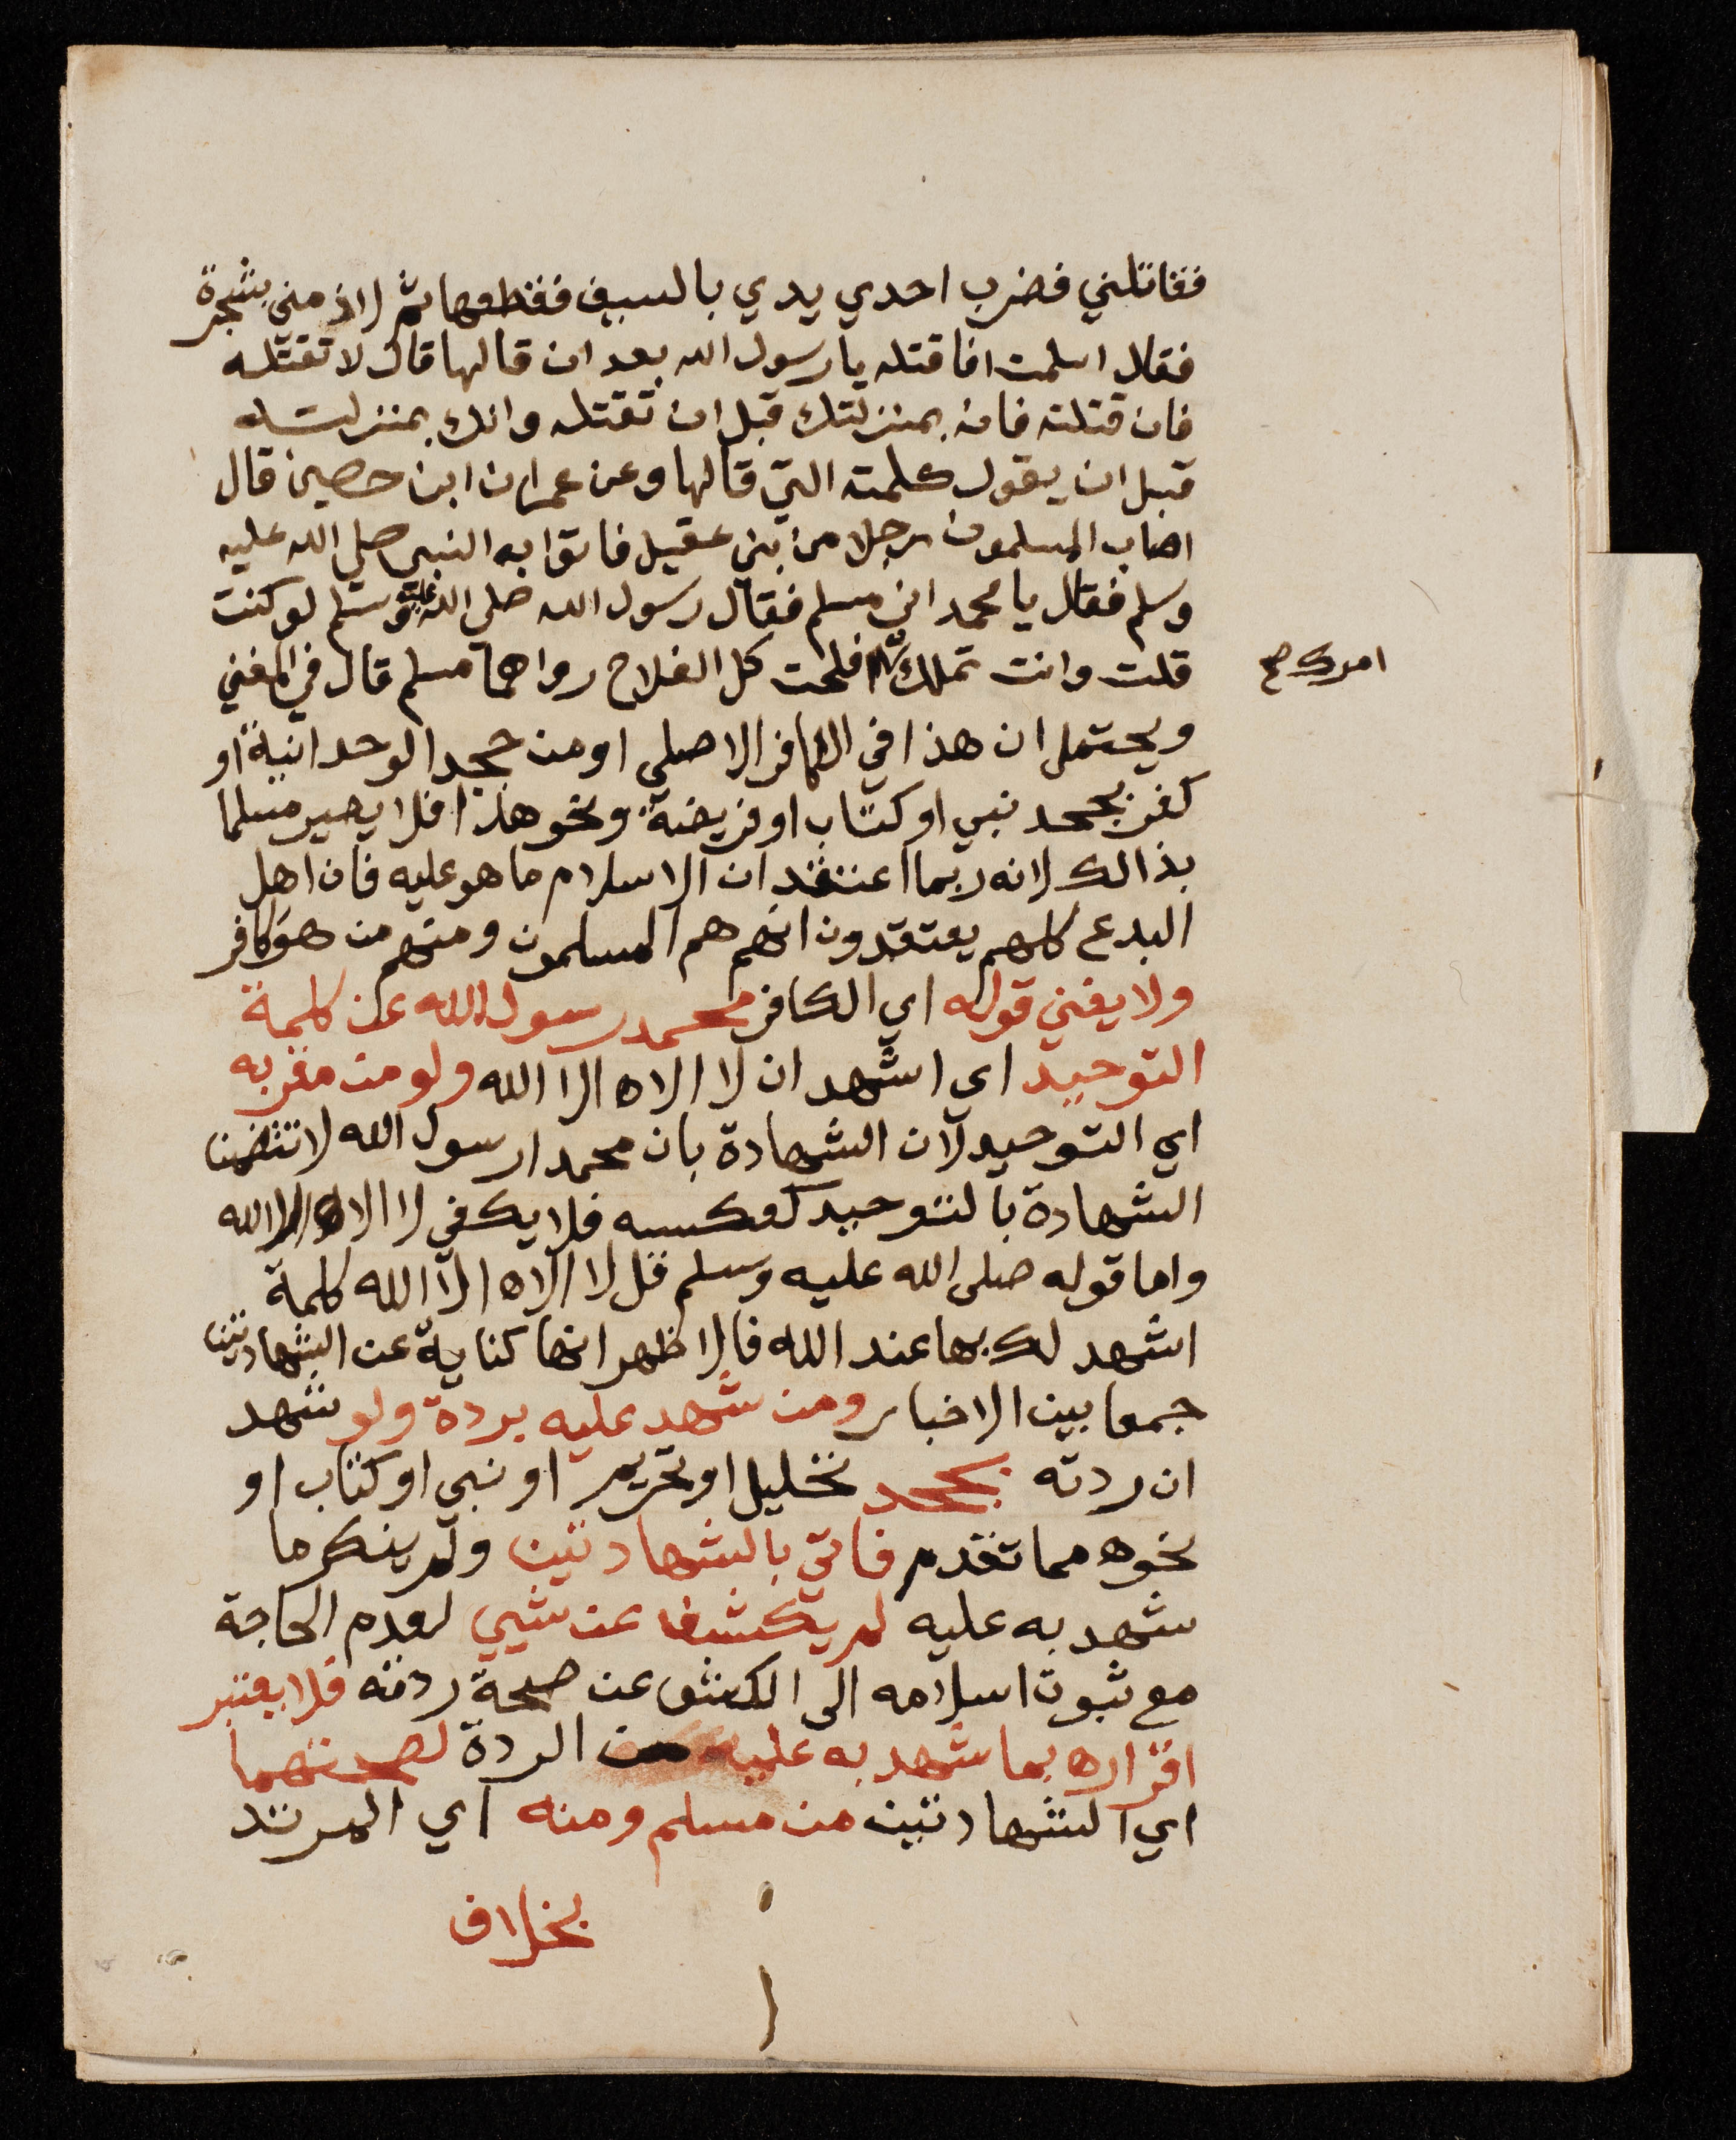 فقاتلني فضرب احدي يدي بالسيف فقطعها ثم لاذ مني بشجرة
فقال اسلمت افاقتله يا رسول الله بعد ان قالها قال لا تقتله
فان قتلته فانه بمنزلتك قبل ان تقتله وانك بمنزلته
قبل ان يقول كلمته التي قالها وعن عمران ابن حصين قال
اصاب المسلمون رجلا من بني عقيل فاتوا به النبي صلي الله عليه
وسلم فقال يا محمد اني مسلم فقال رسول الله صلى الله عليه وسلم لو كنت
قلت وانت تملك افلحت كل الفلاح رواهما مسلم قال في المغني
امرك صح
ويحتمل ان هذا في الكافر الاصلي او من جحد الوحدانية او
كفر بجحد نبي او كتاب او فريضة ونحو هذا فلا يصير مسلما
بذالك لانه ربما اعتقد ان الاسلام ما هو عليه فان اهل
البدع كلهم يعتقدون انهم هم المسلمون ومنهم من هو كافر
ولا يغني قوله اي الكافر محمد رسول الله عن كلمة
التوحيد اي اشهد ان لا الاه الا الله ولو من مقر به
اي التوحيد لان الشهادة بان محمدا رسول الله لا تتضمن
الشهادة بالتوحيد كعكسه فلا يكفي لا الاه الا الله
واما قوله صلى الله عليه وسلم قل لا الاه الا الله كلمة
اشهد لك بها عند الله فالاظهر انها كناية عن الشهادتين
جمعا بين الاخبار ومن شهد عليه بردة ولو شهد
ان ردته بجحد تحليل او تحريم او نبي او كتاب او
نحوه مما تقدم فاتي بالشهادتين ولم ينكر ما
شهد به عليه لم يكشف عن شيي لعدم الحاجة
مع ثبوت اسلامه الى الكشف عن صحة ردته فلا يعتبر
اقراره بما شهد به عليه من الردة لصحتهما
اي الشهادتين من مسلم ومنه اي المرتد
بخلاف